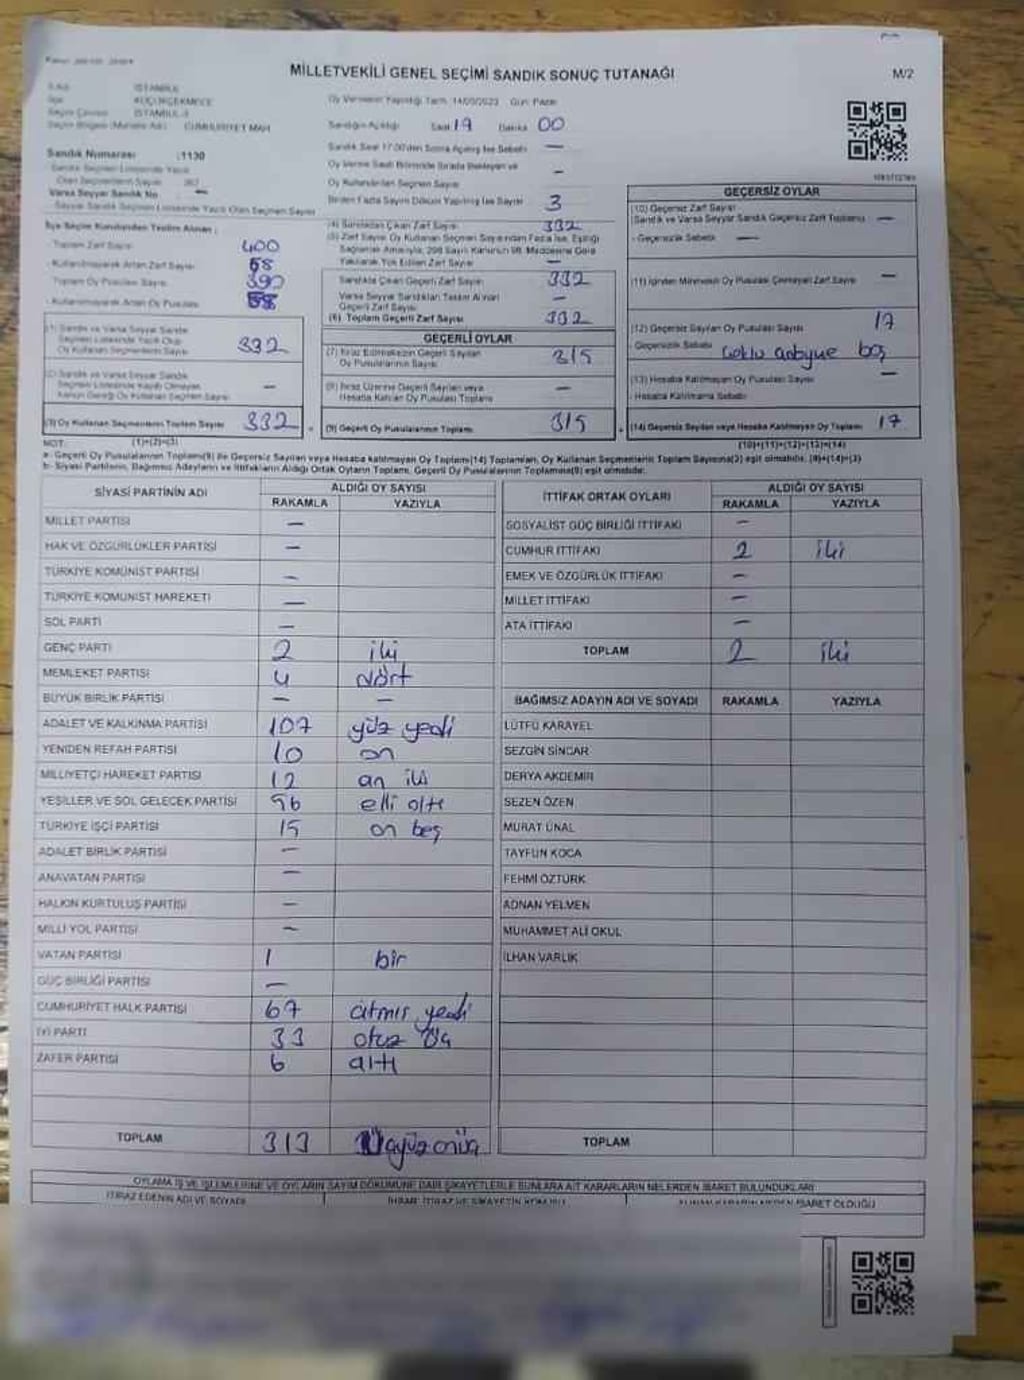 MİLLETVEKİLİ GENEL SEÇİMİ SANDIK SONUÇ TUTANAĞI
M/2
İSTANBUL
KÜÇÜKÇEKMECE
İSTANBUL-3
CUMHURİYET MAH
Oy Vermenin Yapıldığı Tarih: 14/05/2023 Gün: Pazar
Sandığın Açıldığı Saat 19 Dakika 00
Sandık Numarası :1130
Varsa Seyyar Sandık No —
Oy Kullandırılan Seçmen Sayısı —
Birden Fazla Sayım Döküm Yapılmış İse Sayısı 3
İlçe Seçim Kurulundan Teslim Alınan ;
- Toplam Zarf Sayısı 400
- Kullanılmayarak Artan Zarf Sayısı 68
- Toplam Oy Pusulası Sayısı 390
- Kullanılmayarak Artan Oy Pusulası 58
(1) Sandık ve Varsa Seyyar Sandık
Seçmen Listesinde Yazılı Olup
Oy Kullanan Seçmenlerin Sayısı 332
(2) Sandık ve Varsa Seyyar Sandık
Seçmen Listesinde Kayıtlı Olmayan
Kanun Gereği Oy Kullanan Seçmen Sayısı —
(3) Oy Kullanan Seçmenlerin Toplam Sayısı 332
(4) Sandıktan Çıkan Zarf Sayısı 332
(5) Zarf Sayısı Oy Kullanan Seçmen Sayısından Fazla İse, Eşitliği
Sağlamak Amacıyla, 298 Sayılı Kanunun 98. Maddesine Göre
Yakılarak Yok Edilen Zarf Sayısı —
Sandıkta Çıkan Geçerli Zarf Sayısı 332
Varsa Seyyar Sandıktan Teslim Alınan
Geçerli Zarf Sayısı —
(6) Toplam Geçerli Zarf Sayısı 332
GEÇERLİ OYLAR
(7) İtiraz Edilmeksizin Geçerli Sayılan
Oy Pusulalarının Sayısı 315
(8) İtiraz Üzerine Geçerli Sayılan veya
Hesaba Katılan Oy Pusulası Toplamı —
(9) Geçerli Oy Pusulalarının Toplamı 315
GEÇERSİZ OYLAR
(10) Geçersiz Zarf Sayısı
- Sandık ve Varsa Seyyar Sandık Geçersiz Zarf Toplamı —
- Geçersizlik Sebebi —
(11) İçinden Milletvekili Oy Pusulası Çıkmayan Zarf Sayısı —
(12) Geçersiz Sayılan Oy Pusulası Sayısı 17
- Geçersizlik Sebebi boş
(13) Hesaba Katılmayan Oy Pusulası Sayısı —
- Hesaba Katılmama Sebebi
(14) Geçersiz Sayılan veya Hesaba Katılmayan Oy Toplamı 17
NOT: (1)+(2)=(3)
(10)+(11)+(12)+(13)=(14)
a- Geçerli Oy Pusulalarının Toplamı(9) ile Geçersiz Sayılan veya Hesaba katılmayan Oy Toplamı(14) Toplamları, Oy Kullanan Seçmenlerin Toplam Sayısına(3) eşit olmalıdır. (9)+(14)=(3)
b- Siyasi Partilerin, Bağımsız Adayların ve İttifakların Aldığı Ortak Oyların Toplamı, Geçerli Oy Pusulalarının Toplamına(9) eşit olmalıdır.
SİYASİ PARTİNİN ADI ALDIĞI OY SAYISI
RAKAMLA YAZIYLA
MİLLET PARTİSİ —
HAK VE ÖZGÜRLÜKLER PARTİSİ —
TÜRKİYE KOMÜNİST PARTİSİ —
TÜRKİYE KOMÜNİST HAREKETİ —
SOL PARTİ —
GENÇ PARTİ 2 iki
MEMLEKET PARTİSİ 4 dört
BÜYÜK BİRLİK PARTİSİ — —
ADALET VE KALKINMA PARTİSİ 107 yüz yedi
YENİDEN REFAH PARTİSİ 10 on
MİLLİYETÇİ HAREKET PARTİSİ 12 on iki
YEŞİLLER VE SOL GELECEK PARTİSİ 56 elli altı
TÜRKİYE İŞÇİ PARTİSİ 15 on beş
ADALET BİRLİK PARTİSİ —
ANAVATAN PARTİSİ —
HALKIN KURTULUŞ PARTİSİ —
MİLLİ YOL PARTİSİ —
VATAN PARTİSİ 1 bir
GÜÇ BİRLİĞİ PARTİSİ —
CUMHURİYET HALK PARTİSİ 67 atmış yedi
İYİ PARTİ 33 otuz üç
ZAFER PARTİSİ 6 altı
TOPLAM 313 üçyüzonüç
İTTİFAK ORTAK OYLARI ALDIĞI OY SAYISI
RAKAMLA YAZIYLA
SOSYALİST GÜÇ BİRLİĞİ İTTİFAKI —
CUMHUR İTTİFAKI 2 iki
EMEK VE ÖZGÜRLÜK İTTİFAKI —
MİLLET İTTİFAKI —
ATA İTTİFAKI —
TOPLAM 2 iki
BAĞIMSIZ ADAYIN ADI VE SOYADI RAKAMLA YAZIYLA
LÜTFÜ KARAYEL
SEZGİN SİNCAR
DERYA AKDEMİR
SEZEN ÖZEN
MURAT ÜNAL
TAYFUN KOCA
FEHMİ ÖZTÜRK
ADNAN YELMEN
MUHAMMET ALİ OKUL
İLHAN VARLIK
TOPLAM
OYLAMA İŞ VE İŞLEMLERİNE VE OYLARIN SAYIM DÖKÜMÜNE DAİR ŞİKAYETLERLE BUNLARA AİT KARARLARIN NELERDEN İBARET BULUNDUKLARI
İTİRAZ EDENİN ADI VE SOYADI